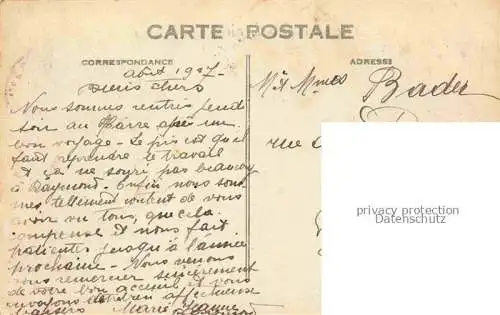 CARTE POSTALE
CORRESPONDANCE
ADRESSE
août 19 7.
Amis chers
Nous sommes rentrés jeudi
soir au Hâvre après un
bon voyage. Le pis est qu'il
faut reprendre le travail
et ça ne sourit pas beaucoup
à Raymond. Enfin nous som
mes tellement content de vous
avoir vu tous, que cela
compense et nous fait
patienter jusqu'à l'année
prochaine. Nous venons
vous remercier sincèrement
de votre bon accueil et vous
envoyons affectueuse
baisers Marie Jeanne
Mr Mmes Bader
rue
privacy protection
Datenschutz